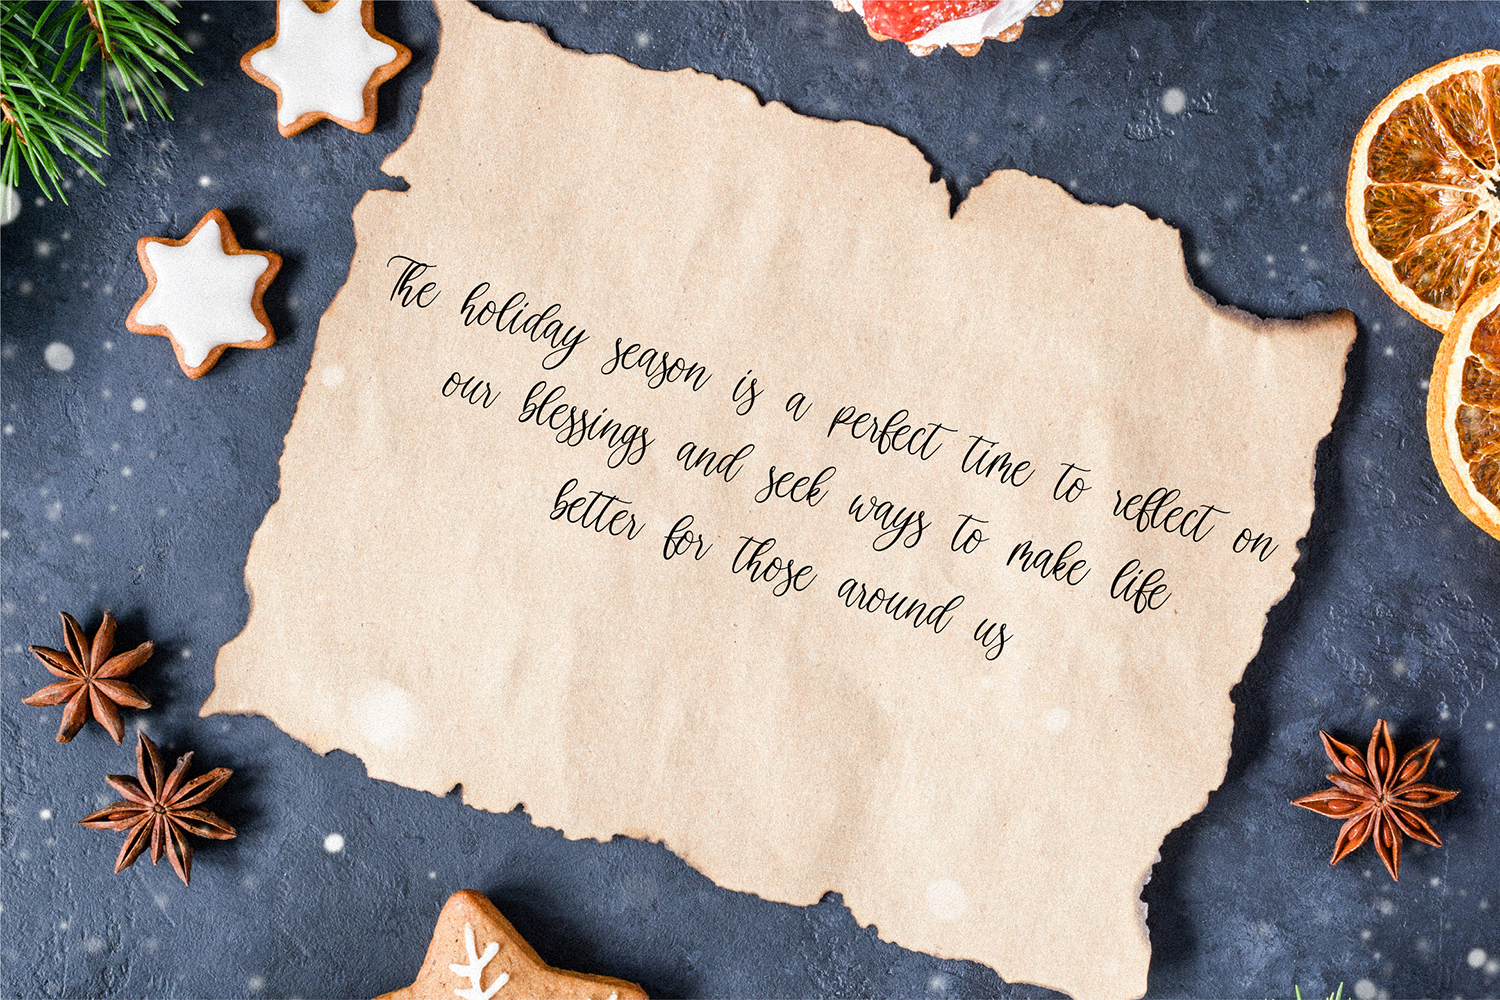 The holiday season is a perfect time to reflect on
our blessings and seek ways to make life
better for those around us